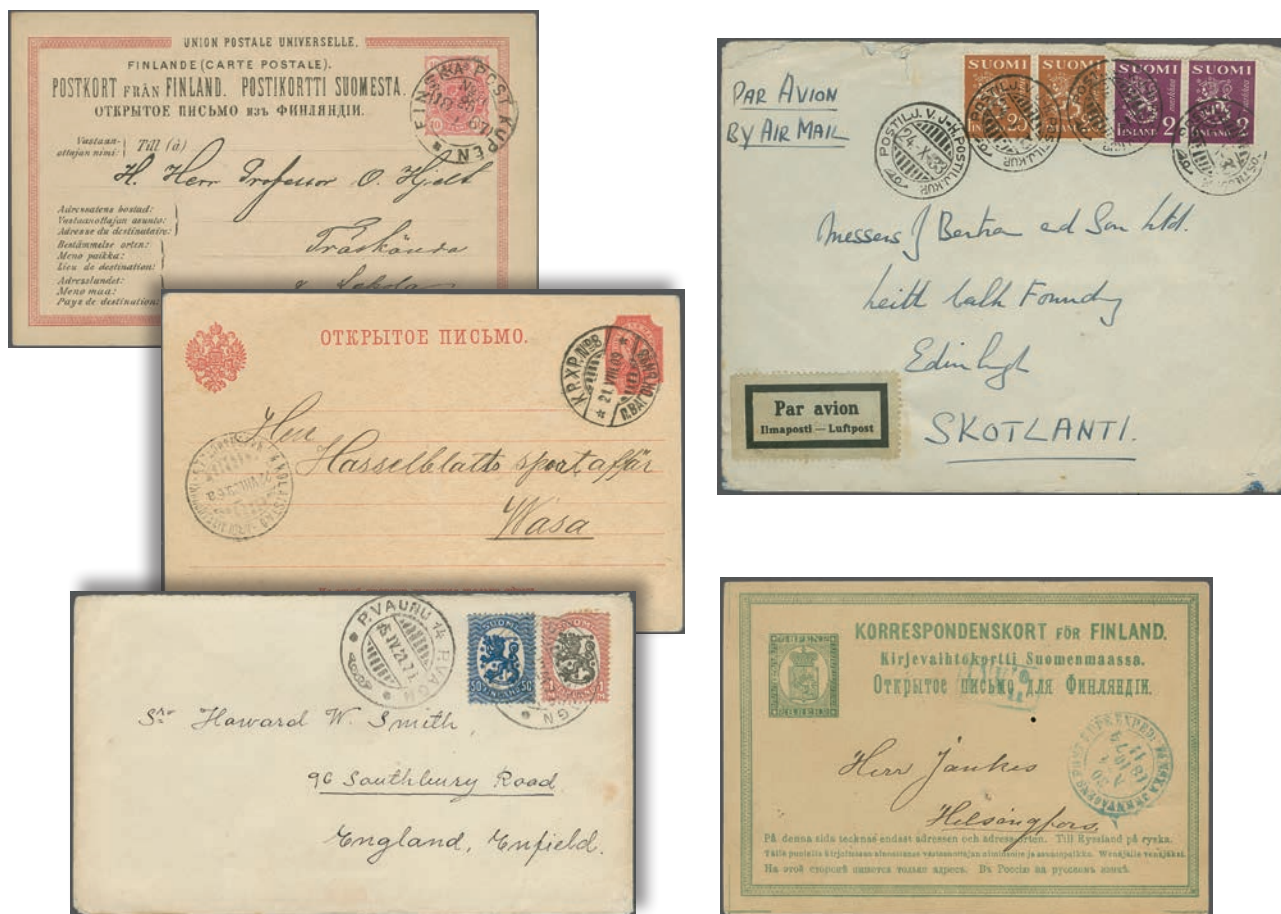 UNION POSTALE UNIVERSELLE.
FINLANDE (CARTE POSTALE).
POSTKORT FRÅN FINLAND. POSTIKORTTI SUOMESTA.
ОТКРЫТОЕ ПИСЬМО изъ ФИНЛЯНДІИ.
Vastaan-
ottajan nimi: Till (à)
H. Herr Professor O. Hjelt
Adressatens bostad:
Vastaanottajan asunto:
Adresse du destinataire:
Träskända
Bestämmelse orten:
Meno paikka:
Lieu de destination:
Adresslandet:
Meno maa:
Pays de destination:
10
FINSKA POST KUPEN
ОТКРЫТОЕ ПИСЬМО.
K.P.X.P. №8
21.VIII.09
Herr
Hasselblatts sportaffär
Wasa
P.VAUNU 14 P.VAGN
15.IV.21.
SUOMI
50 50
Howard W. Smith,
96 Southbury Road
England, Enfield.
PAR AVION
BY AIR MAIL
SUOMI SUOMI SUOMI SUOMI
FINLAND 2 2
POSTILJ.V.J-H. POSTILJ.KUR
24.X.33
Messers J Bertram and Son Ltd.
Leith Walk Foundry
Edinburgh
SKOTLANTI.
Par avion
Ilmaposti — Luftpost
KORRESPONDENSKORT FÖR FINLAND.
Kirjevaihtokortti Suomenmaassa.
Открытое письмо для Финляндіи.
Herr Jankes
Helsingfors.
På denna sida tecknas endast adressen och adressorten. Till Ryssland på ryska.
Tälle puolelle kirjoitetaan ainoastansa vastaanottajan nimi Venäjälle venäjäksi.
На этой сторонѣ пишется только адресъ. Въ Россію на русскомъ языкѣ.